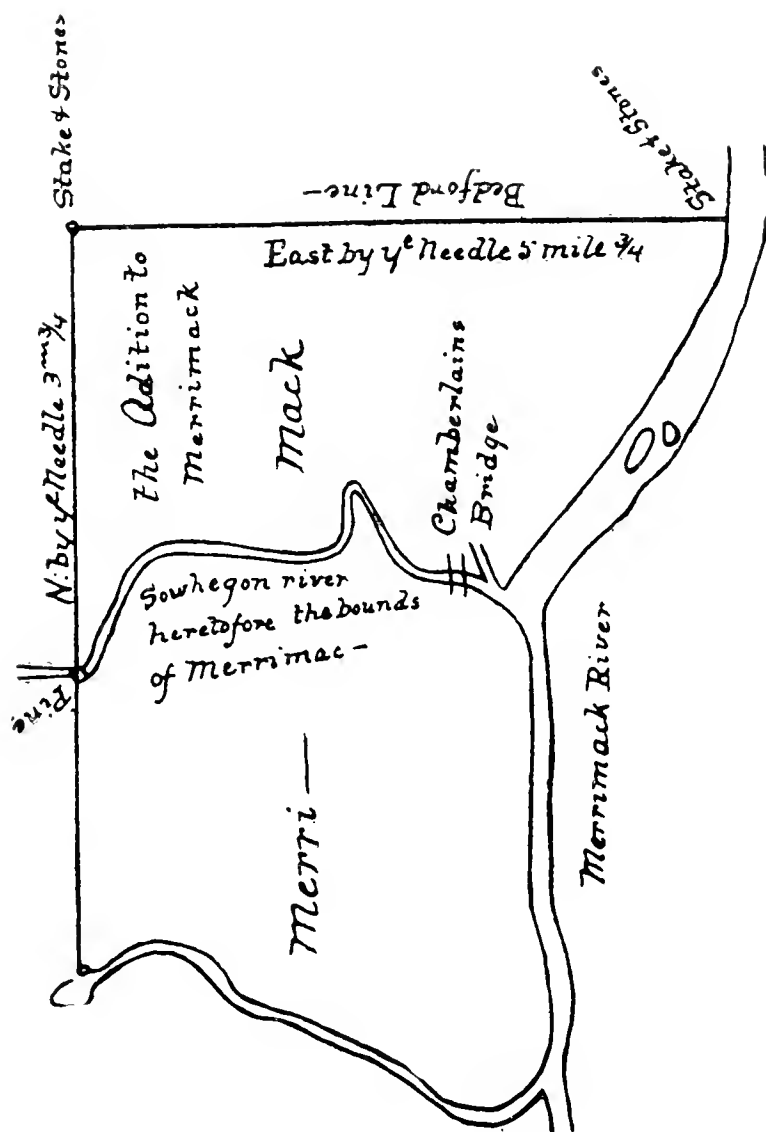 Stake & Stones
Stake & Stones
Bedford Line —
East by yᵉ Needle 5 mile ¾
N: by yᵉ Needle 3 mˢ ¾
the Adition to
Merrimack
Merri —
Mack
Chamberlains
Bridge
Sowhegon river
heretofore the bounds
of Merrimac —
Pine
Merrimack River